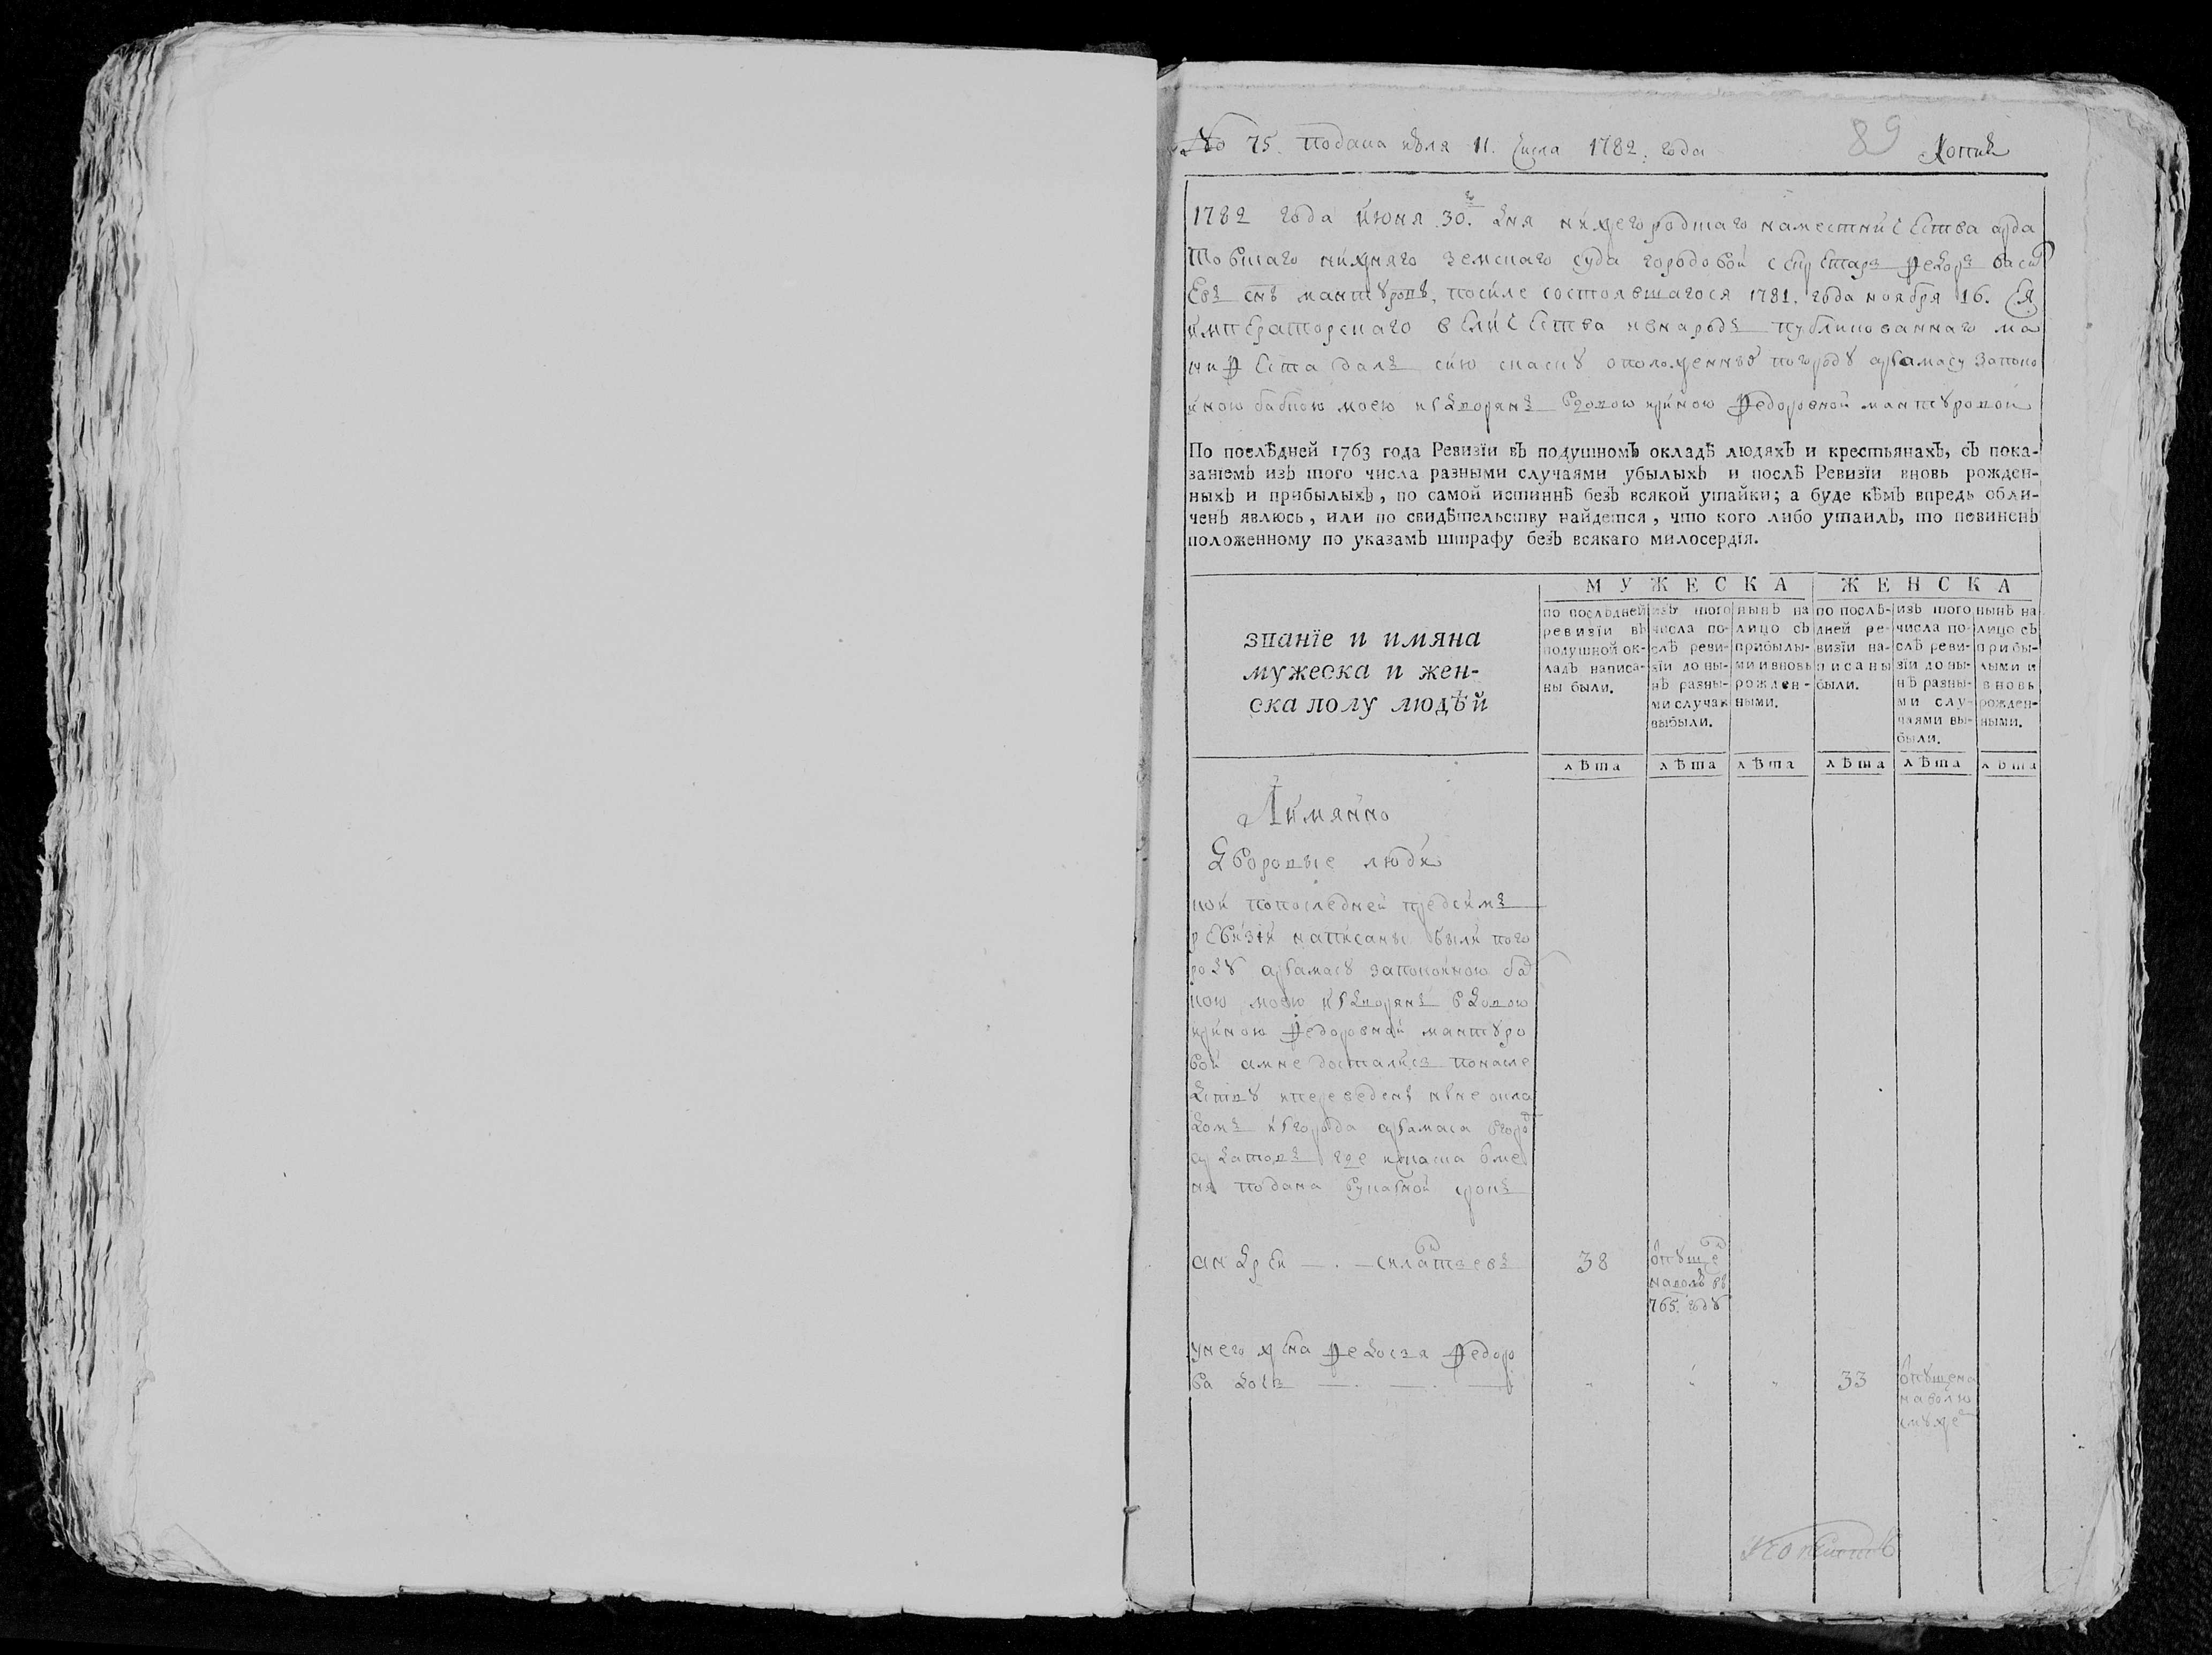 № 75. подана июля 11. числа 1782. года
89
Копия
1782 года июня 30.го дня нижегородшаго наместничества арда
товшаго нижняго земскаго суда городовой секретарь федоръ васил
евъ снъ мантуровъ, посиле состоявшагося 1781. года ноября 16. Ея
императорскаго величества ивнародъ публикованнаго ма
нифеста далъ сию скаску оположенныхъ погороду арзамасу запоко
иною бабкою моею издворянъ вдовою ириною федоровной мантуровой
По послѣдней 1763 года Ревизїи въ подушномъ окладѣ людяхъ и крестьянахъ, съ пока-
занїемъ изъ того числа разными случаями убылыхъ и послѣ Ревизїи вновь рожден-
ныхъ и прибылыхъ, по самой истиннѣ безъ всякой утайки; а буде кѣмъ впредь обли-
ченъ явлюсь, или по свидѣтельству найдется, что кого либо утаилъ, то повиненъ
положенному по указамъ штрафу безъ всякаго милосердїя.
МУЖЕСКА ЖЕНСКА
званїе и имяна
мужеска и жен-
ска полу людѣй
по послѣдней
ревизїи въ
подушной ок-
ладъ написа-
ны были.
изъ того
числа по-
слѣ реви-
зїи до ны-
нѣ разны-
ми случая
выбыли.
нынѣ на
лицо съ
прибылы-
ми и вновь
рожден-
ными.
по послѣ-
дней ре-
визїи на-
писаны
были.
изъ того
числа по-
слѣ реви-
зїи до ны-
нѣ разны-
ми слу-
чаями вы-
были.
нынѣ на
лицо съ
прибы-
лыми и
вновь
рожден-
ными.
лѣта лѣта лѣта лѣта лѣта лѣта
Аимянно
Дворовые люди
кои попоследней предсимъ
ревизїи написаны были пого
роду арзамасу запокоиною баб
кою моею издворянъ вдовою
ириною федоровной мантуро
вой амне досталисъ понасле
дству ипереведены мне окла
домъ изгорода арзамаса вгород
ардатовъ где искаска оме
ня подана вуказной срокъ
андрей — . — силатьевъ 38
отпуще
наволю въ
765. году
унего жена федосья федоро
ва дочь — . — . — 33
отпущена
наволю
смуже